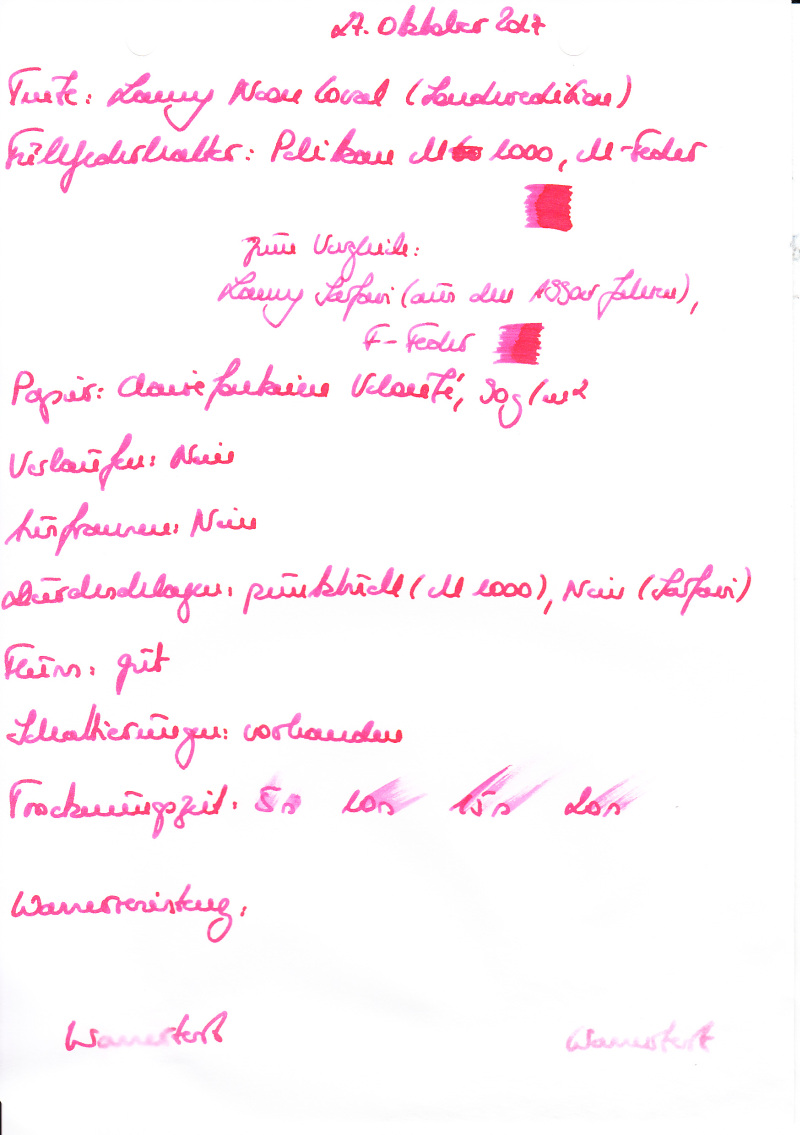 27. Oktober 2017
Tinte: Lamy Neon Coral (Sonderedition)
Füllfederhalter: Pelikan M 1000, M-Feder
zum Vergleich:
Lamy Safari (aus den 1990er Jahren),
F-Feder
Papier: Clairefontaine Velouté, 90g/m²
Verlaufen: Nein
Ausfransen: Nein
Durchschlagen: pünktlich (M 1000), Nein (Safari)
Fluss: gut
Schattierungen: vorhanden
Trocknungszeit: 5s 10s 15s 20s
Wasserfestigkeit:
Wassertest Wassertest